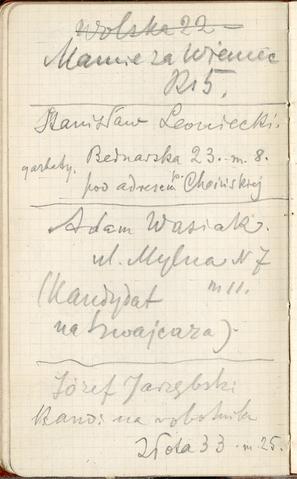 Wolska 22
Mamie za Wieniec
Rs 5.
Stanisław Leoniecki.
garbaty. Bednarska 23. m. 8.
pod adresem p. Choińskiej
Adam Wasiak.
ul. Mylna N 7
(Kandydat m 11.
na szwajcara).
Józef Jarzębski
Kand: na robotnika
Złota 33 m 25.